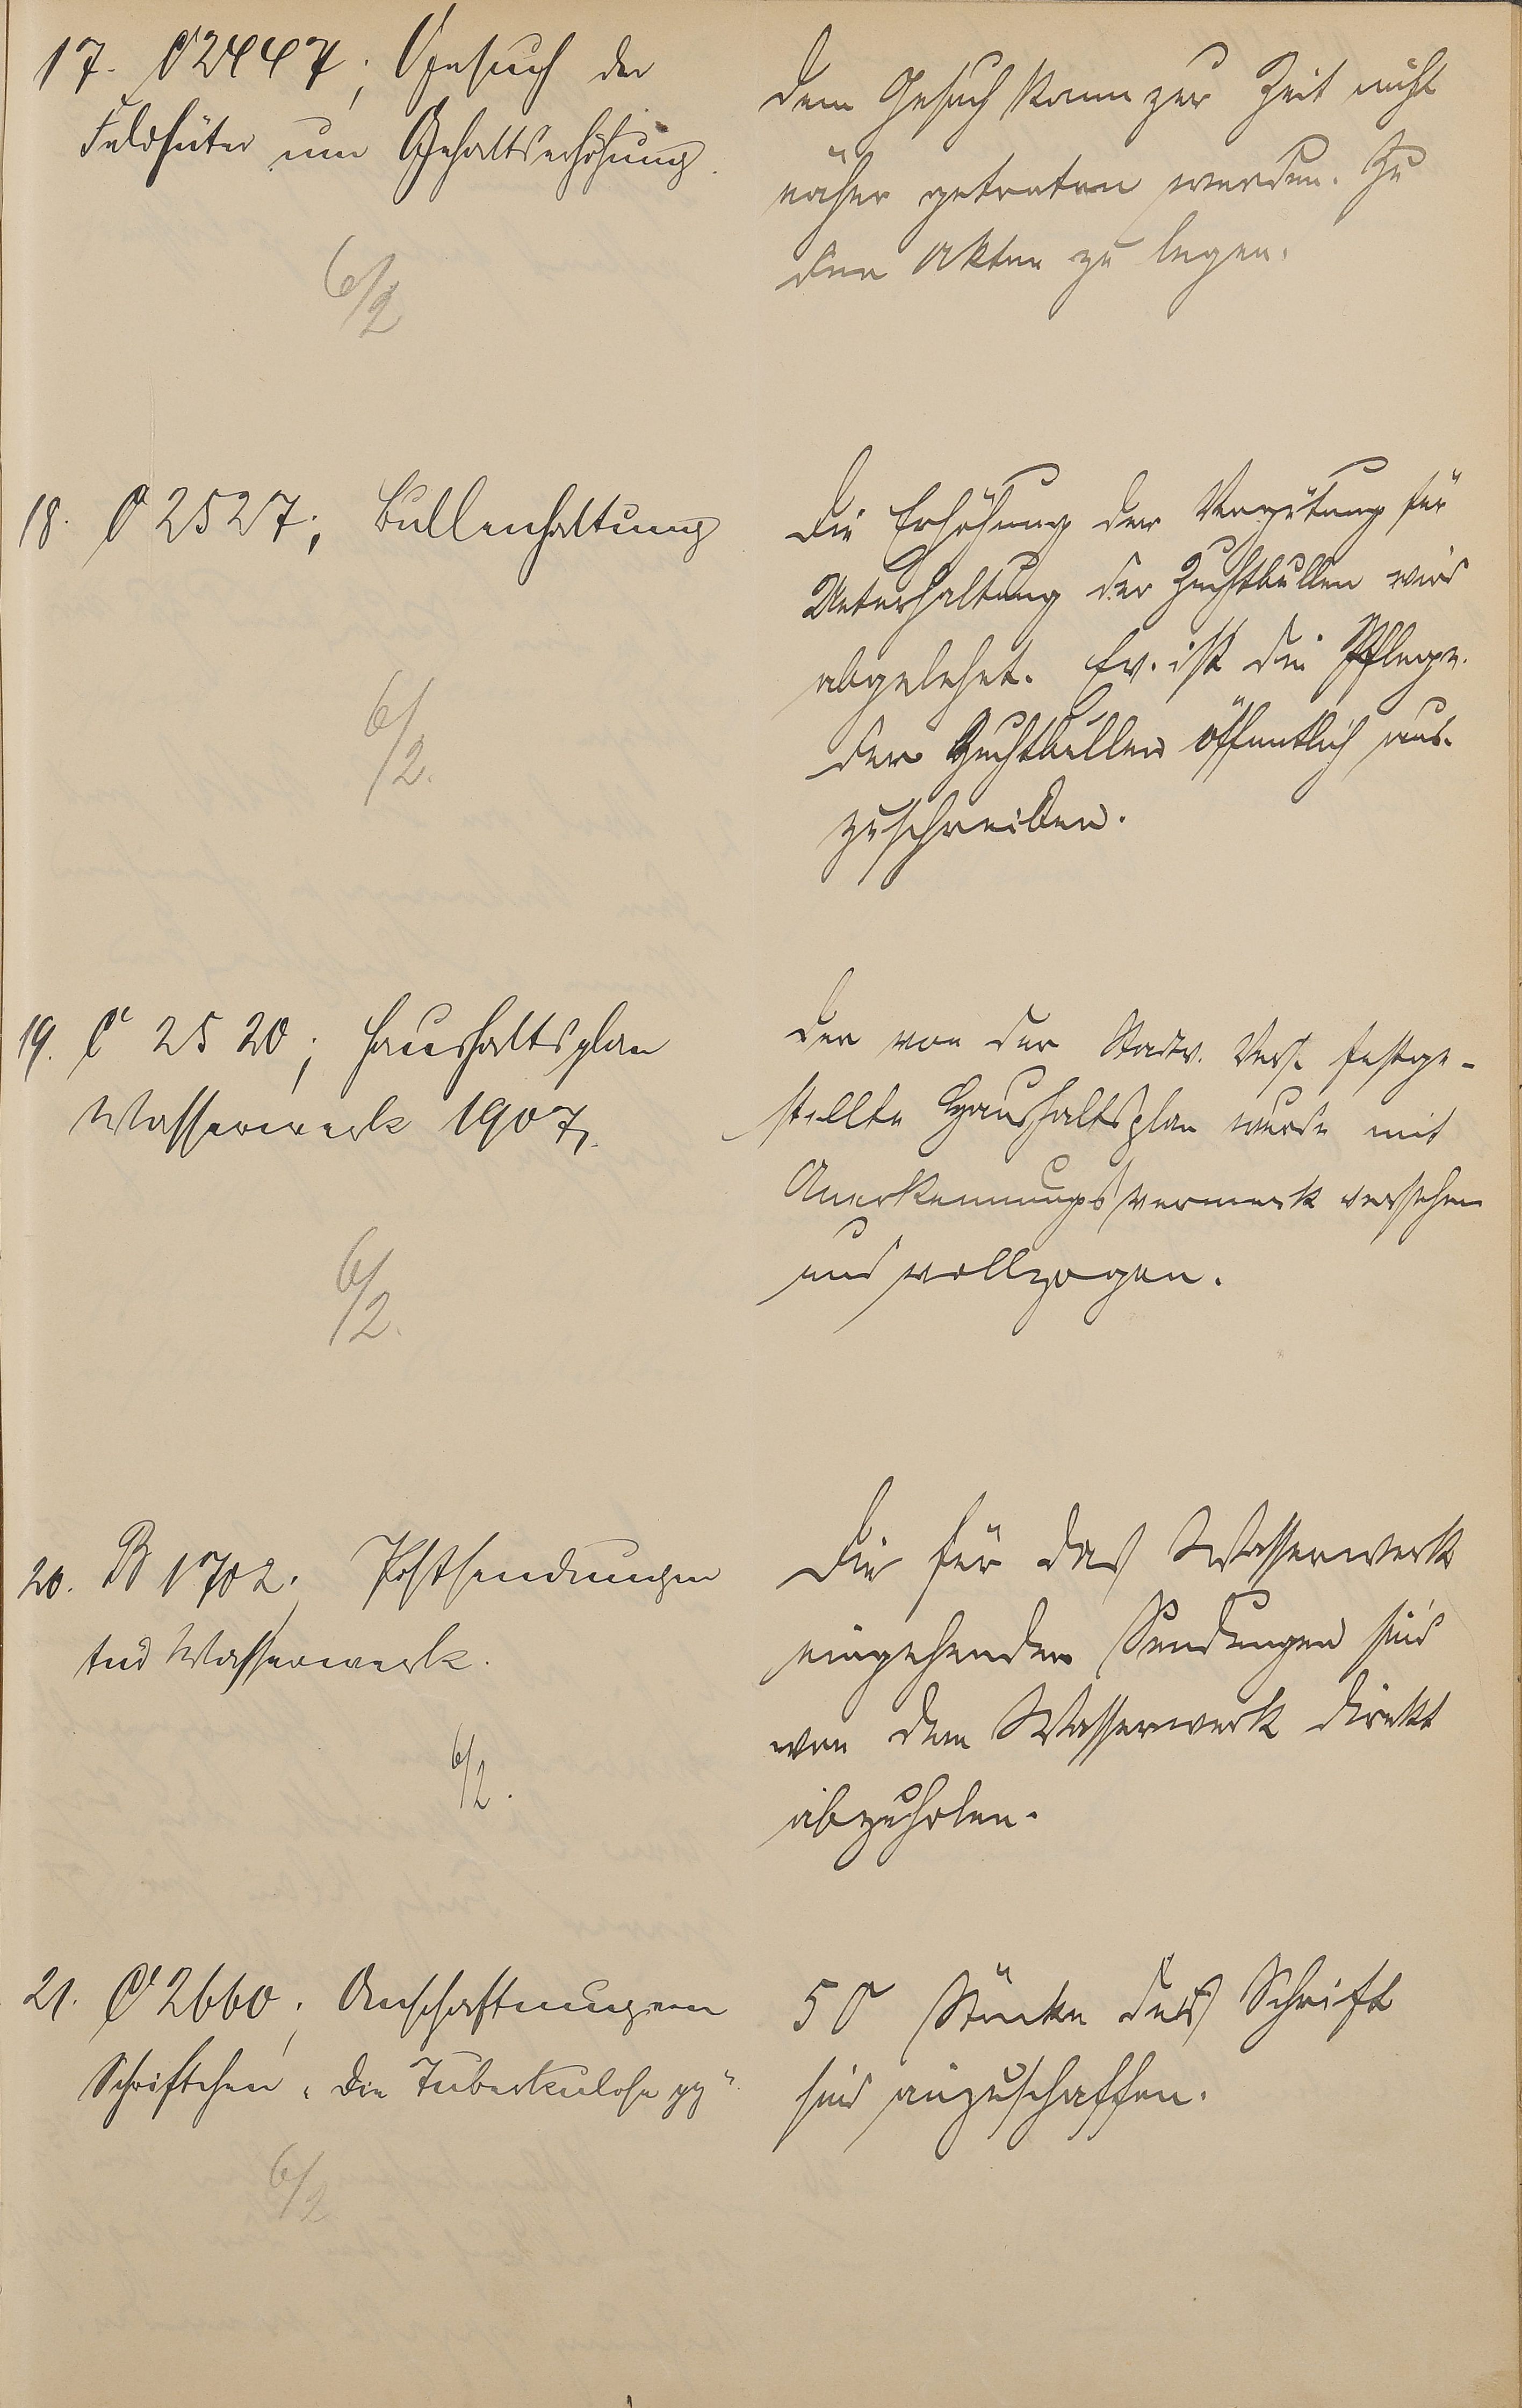 17. C 2447; Gesuch der
Feldhüter um Gehaltserhöhung.
6/2
Dem Gesuch kann zur Zeit nicht
näher getreten werden. Zu
den Akten zu legen.
18. C 2527; Bullenhaltung
6/2.
Die Erhöhung der Vergütung für
Unterhaltung der Zuchtbullen wird
abgelehnt. Ev. ist die Pflege
der Zuchtbullen öffentlich aus-
zuschreiben.
19. C 2520; Haushaltsplan
Wasserwerk 1907.
6/2.
Der von der Stadtv. Vers. festge-
stellte Haushaltsplan wurde mit
Anerkennungsvermerk versehen
und vollzogen.
20. B 1702; Postsendungen
Wasserwerk.
6/2.
Die für das Wasserwerk
eingehenden Sendungen sind
von dem Wasserwerk direkt
abzuholen.
21. C 2660; Anschaffungen
Schriftchen "Die Tuberkulose pp"
6/2
50 Stücke der Schrift
sind anzuschaffen.